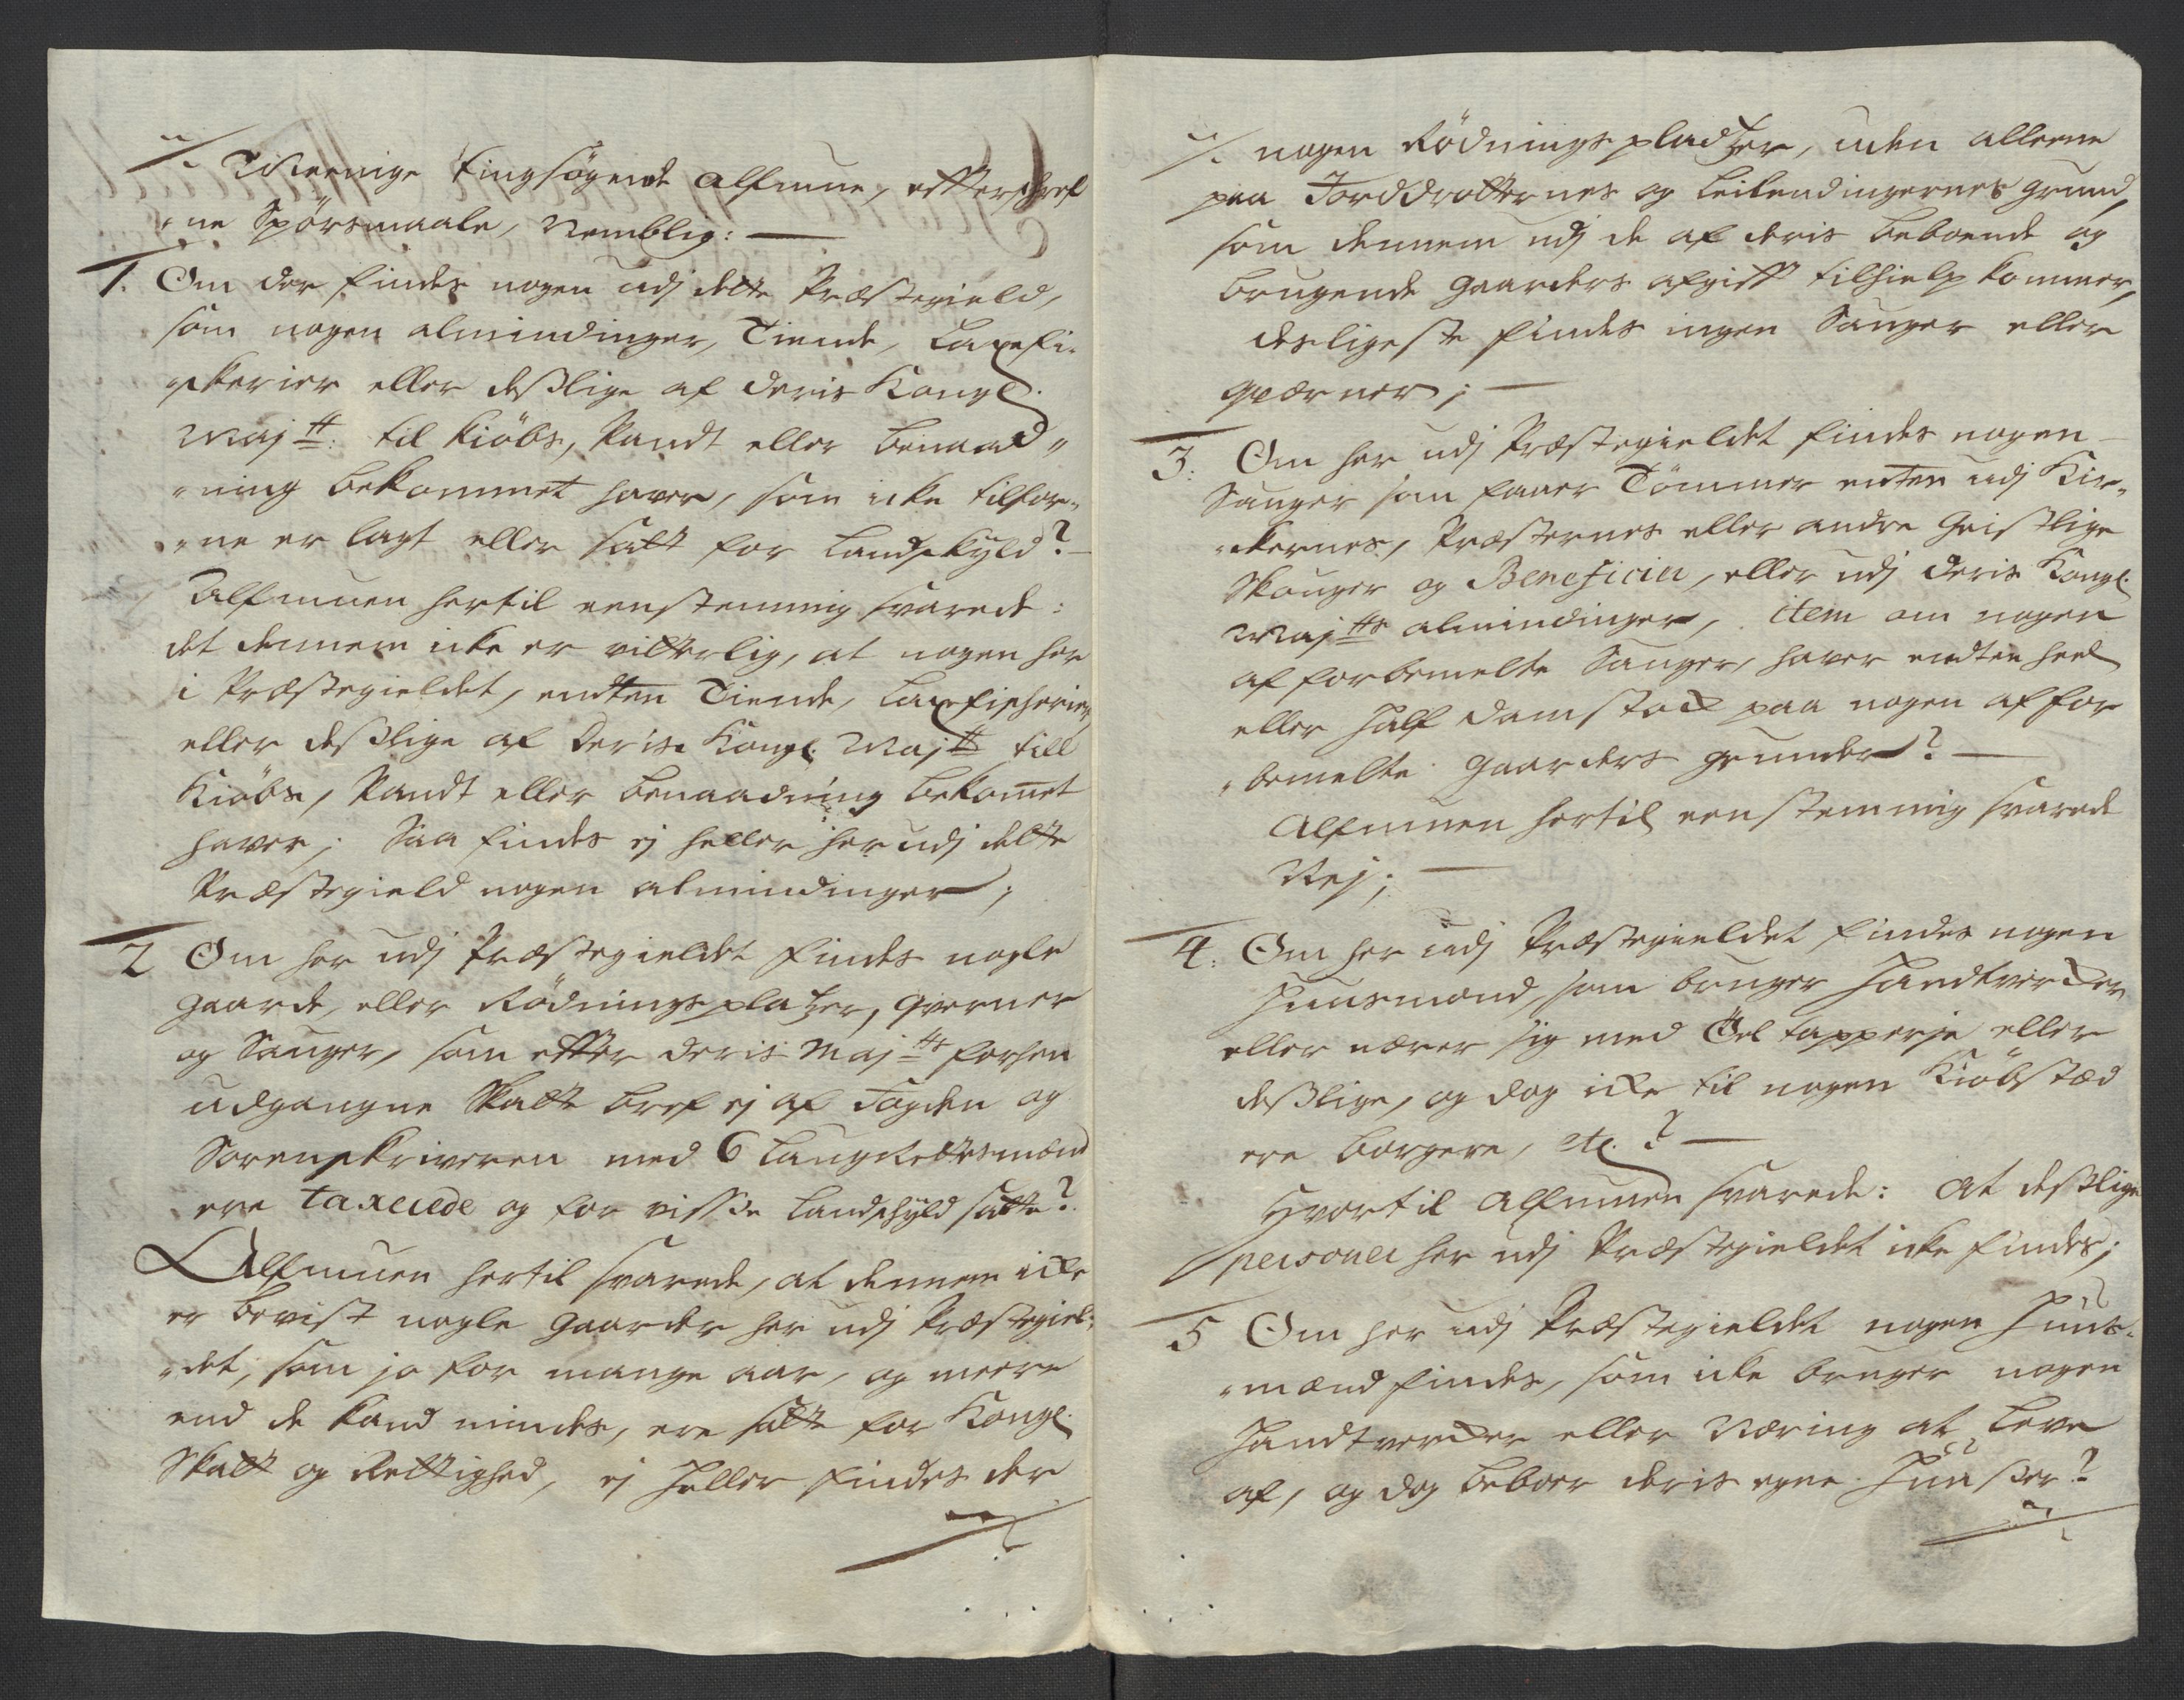 Menige tingsøgende Almue, efterskref
ne Spørsmaale, Nemblig:
1. Om der findes nogen udj dette Præstegield,
som nogen almindinger, Tiende, Laxefi-
skerier eller deslige af deris Kongl.
Maj:tt: til kiøbs, Pandt eller benaad-
ning bekommet haver, som icke tilfor-
ne er lagt eller satt for Landskyld?
Almuen hertil eenstemmig svarede:
det dennem icke er vitterlig, at nogen her
i Præstegieldet, endten Tiende, Laxefischerier
eller deslige af Deris Kongl. Maj:tt till
Kiøbs, Pandt eller benaadning bekomet
haver; Saa findes ej heller her udj dette
Præstegield nogen almindinger;
2 Om her udj Præstegieldet findes nogle
gaarde, eller Rødningsplatzer, Qverner
og Sauger, som efter Deris Maj:tts forhen
udgangne Skatte bref ej af Fogden og
Sorenskriveren med 6 Laugrettesmænd
ere taxerede og for visse Landskyld satte?
Almuen hertil svarede, at dennem icke
er bevist nogle gaarder her udj Præstegiel-
det, som jo for mange aar, og meere
end de kand mindes, ere satte for Kongl.
Skatt og Rettighed, ej heller findes der
nogen Rødnings pladtzer, uden alleene
paa Jorddrotternes og Leilendingernes grund,
som dennem udj de af deris beboende og
brugende gaarders afgift tilhielp kommer,
desligeste findes ingen Sauger eller
qværner;
3. Om her udj Præstegieldet findes nogen
Sauger som faaer Tømmer enten udj Kir-
kernes, Præsternes eller andre Geistlige
Skouger og Beneficier, eller udj Deris Kongl.
Maj:tts almindinger, item om nogen
af forbemelte Sauger, haver endten heel
eller half damstock paa nogen af for
bemelte gaarders grunder?
Almuen hertil eenstemmig svarede
Nej;
4. Om her udj Præstegieldet findes nogen
Huusmænd, som bruger Handtvercker
eller nærer sig med Øel tapperje eller
deslige, og dog icke til nogen Kiøbstæd
ere borgere, etc.?
Hvortil Almuen svarede: At deslige
personer her udj Præstegieldet icke findes;
5 Om her udj Præstegieldet nogen Huus-
mænd findes, som icke bruger nogen
Handtvercker eller Næring at Leve
af, og dog beboer deris egne Huusser?